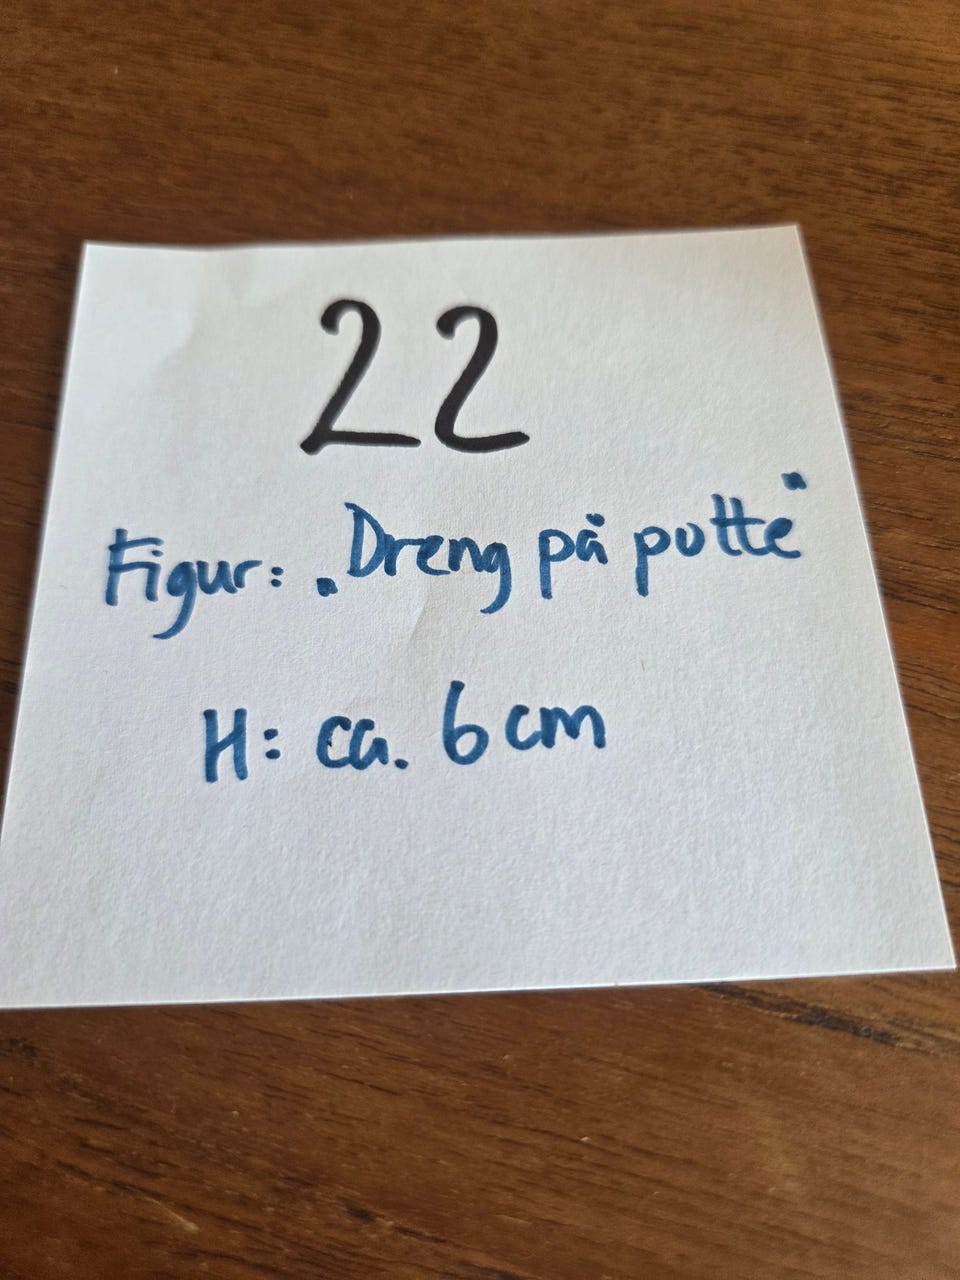 22
Figur: „Dreng på putte"
H: ca. 6 cm